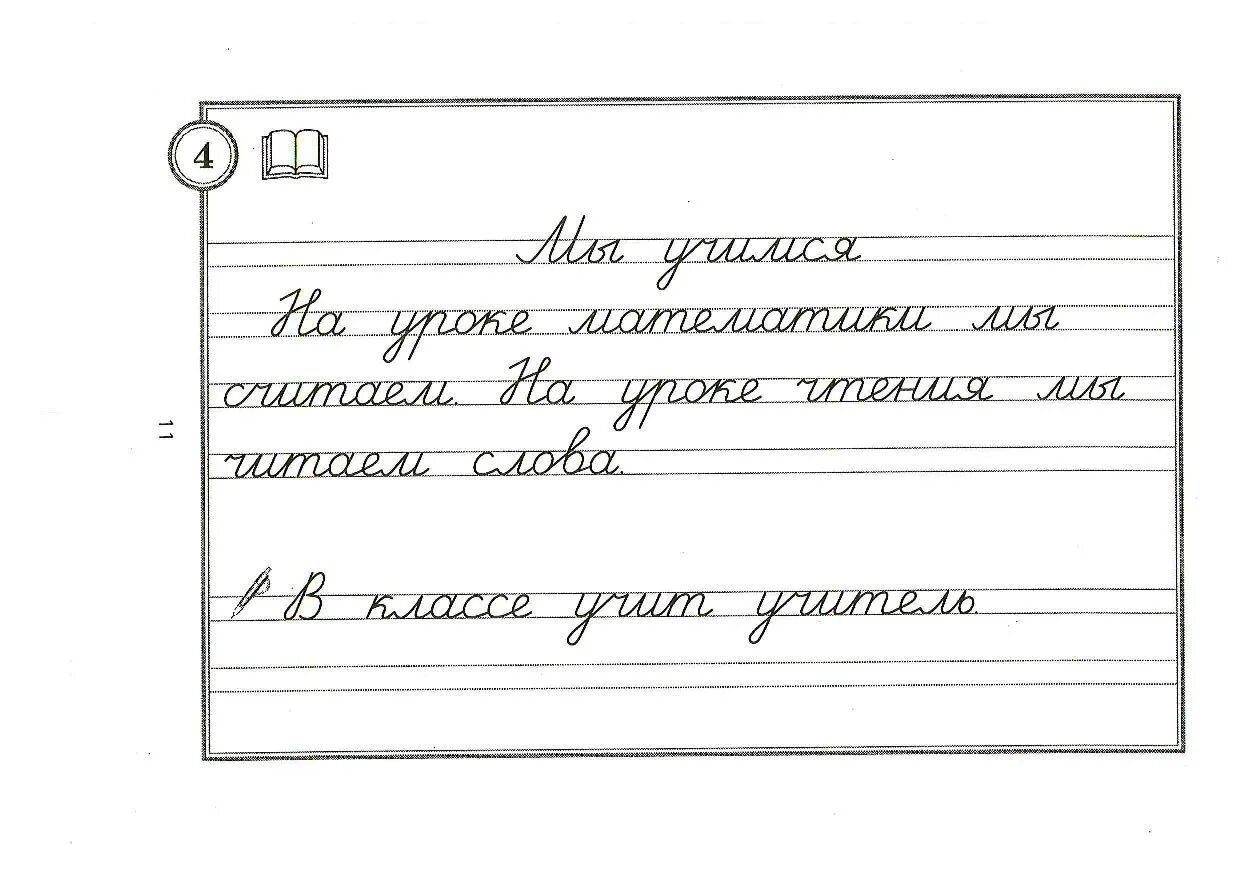 4
Мы учимся
На уроке математики мы
считаем. На уроке чтения мы
читаем слова.
В классе учит учитель.
11